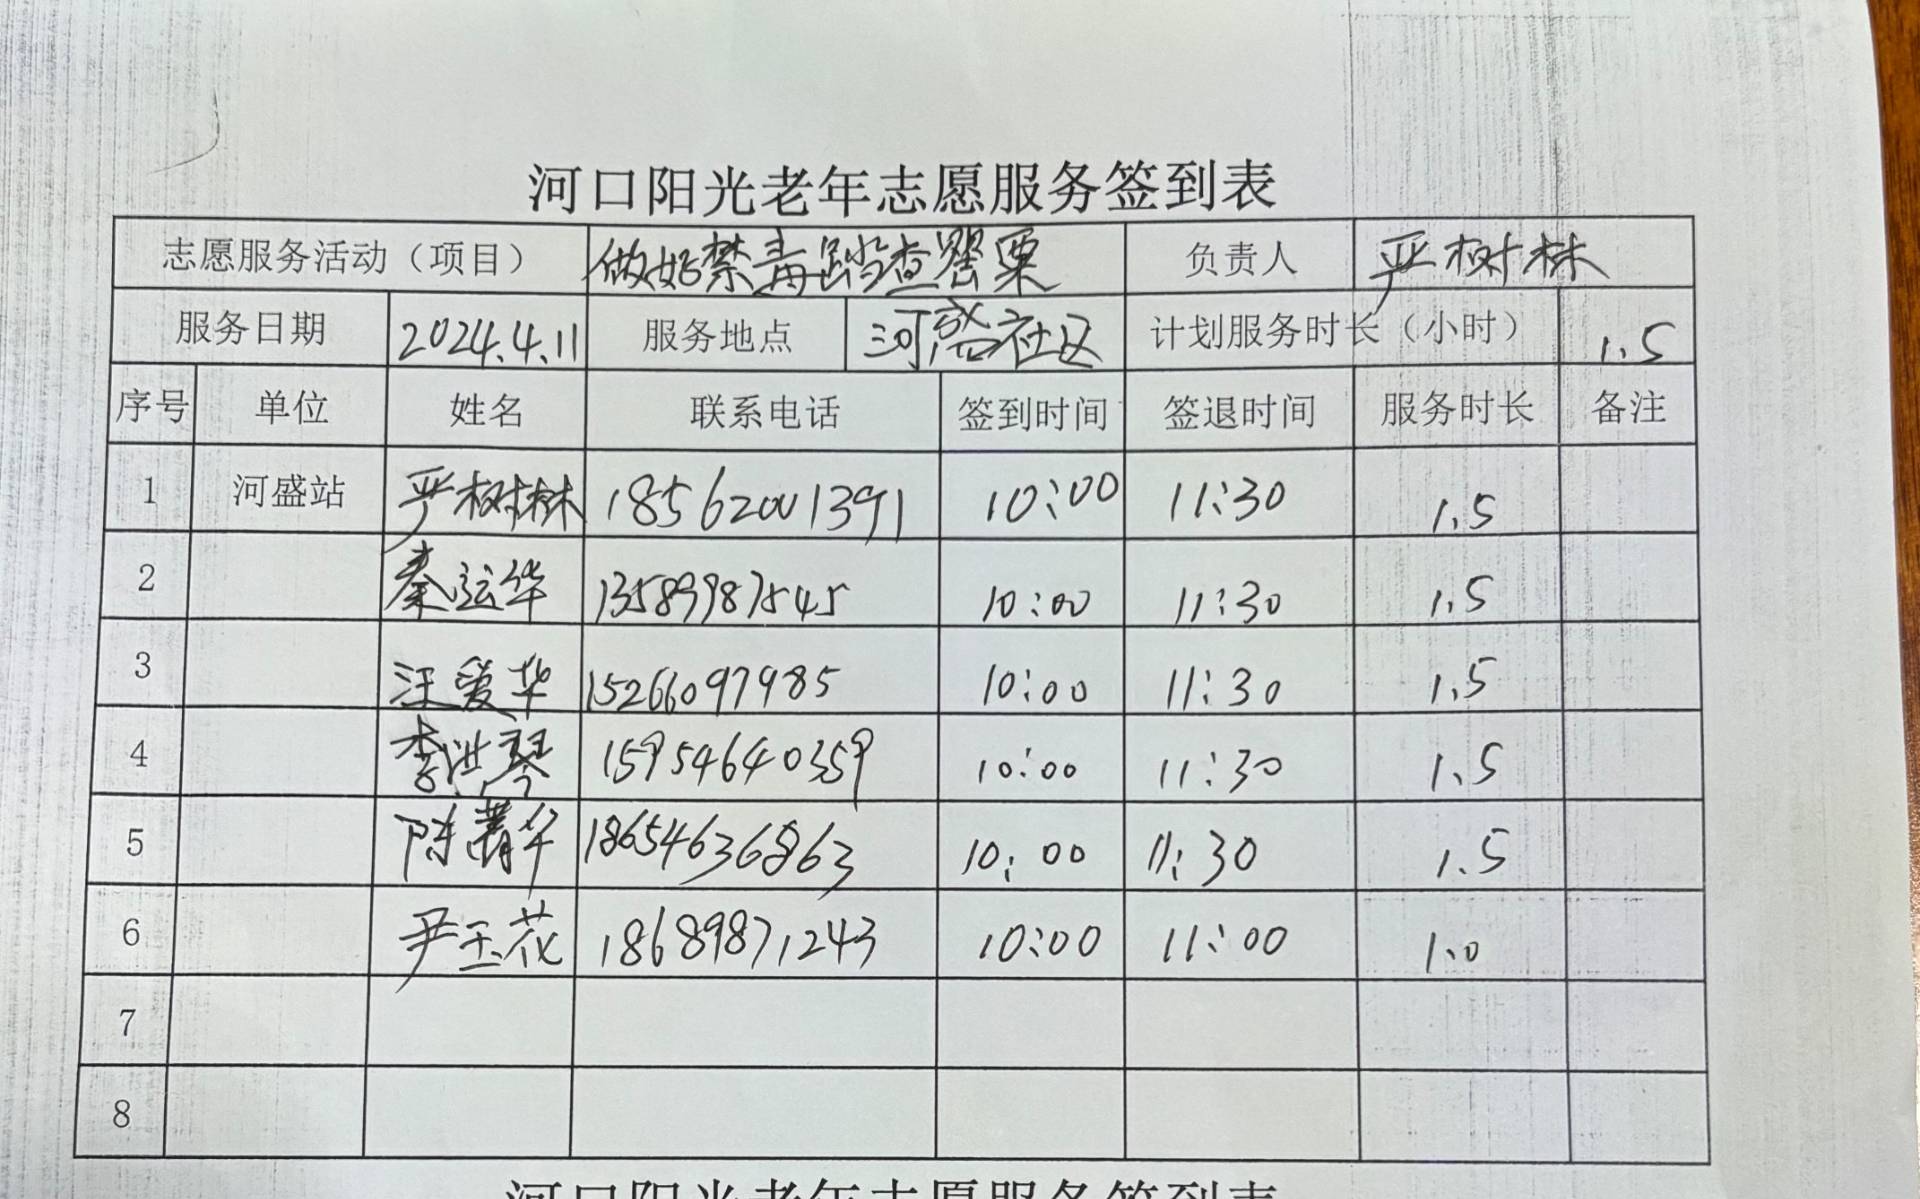 河口阳光老年志愿服务签到表
志愿服务活动（项目） 做好禁毒踏查罂粟 负责人 严树林
服务日期 2024.4.11 服务地点 河盛社区 计划服务时长（小时） 1.5
序号 单位 姓名 联系电话 签到时间 签退时间 服务时长 备注
1 河盛站 严树林 18562001391 10:00 11:30 1.5
2 秦运华 13589987545 10:00 11:30 1.5
3 汪爱华 15266097985 10:00 11:30 1.5
4 李洪琴 15954640359 10:00 11:30 1.5
5 陈菁华 18654636863 10:00 11:30 1.5
6 尹玉花 18689871243 10:00 11:00 1.0
7
8
河口阳光老年志愿服务签到表